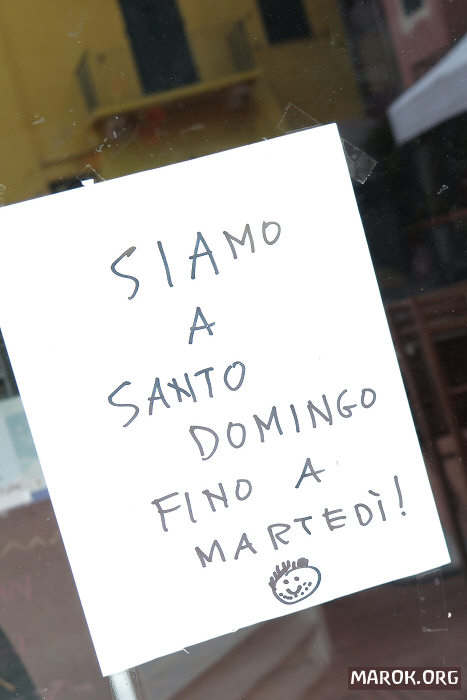 SIAMO
A
SANTO
DOMINGO
FINO A
MARTEDÌ!
MAROK.ORG